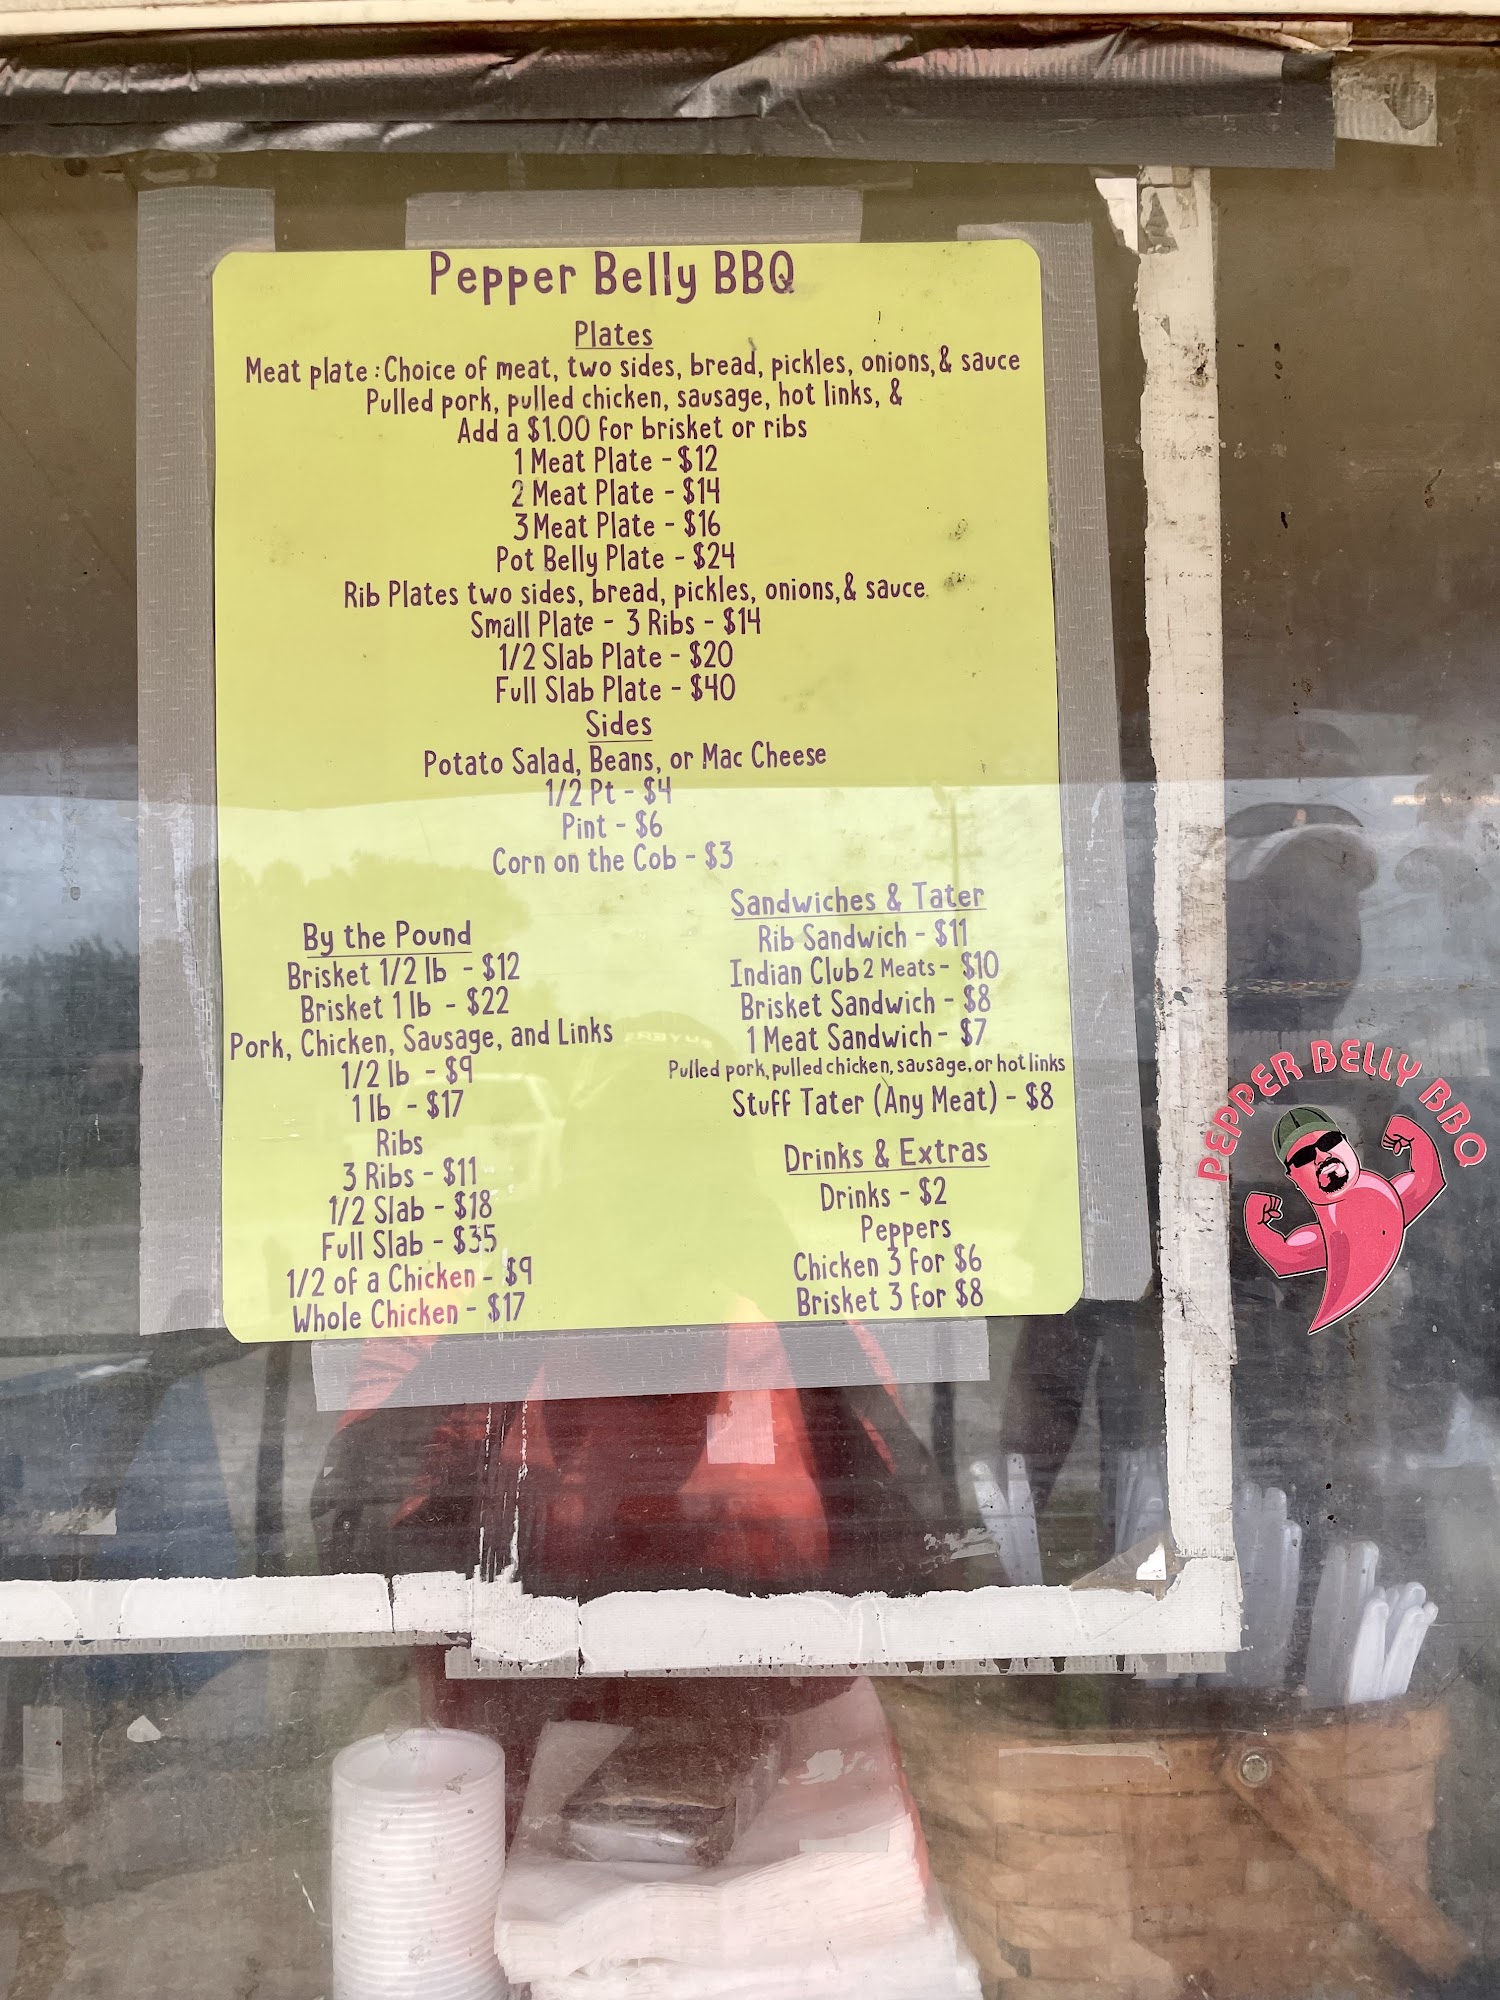 Pepper Belly BBQ
Plates
Meat plate : Choice of meat, two sides, bread, pickles, onions, & sauce
Pulled pork, pulled chicken, sausage, hot links, &
Add a $1.00 for brisket or ribs
1 Meat Plate - $12
2 Meat Plate - $14
3 Meat Plate - $16
Pot Belly Plate - $24
Rib Plates two sides, bread, pickles, onions, & sauce
Small Plate - 3 Ribs - $14
1/2 Slab Plate - $20
Full Slab Plate - $40
Sides
Potato Salad, Beans, or Mac Cheese
1/2 Pt - $4
Pint - $6
Corn on the Cob - $3
By the Pound
Brisket 1/2 lb - $12
Brisket 1 lb - $22
Pork, Chicken, Sausage, and Links
1/2 lb - $9
1 lb - $17
Ribs
3 Ribs - $11
1/2 Slab - $18
Full Slab - $35
1/2 of a Chicken - $9
Whole Chicken - $17
Sandwiches & Tater
Rib Sandwich - $11
Indian Club 2 Meats - $10
Brisket Sandwich - $8
1 Meat Sandwich - $7
Pulled pork, pulled chicken, sausage, or hot links
Stuff Tater (Any Meat) - $8
Drinks & Extras
Drinks - $2
Peppers
Chicken 3 for $6
Brisket 3 for $8
PEPPER BELLY BBQ